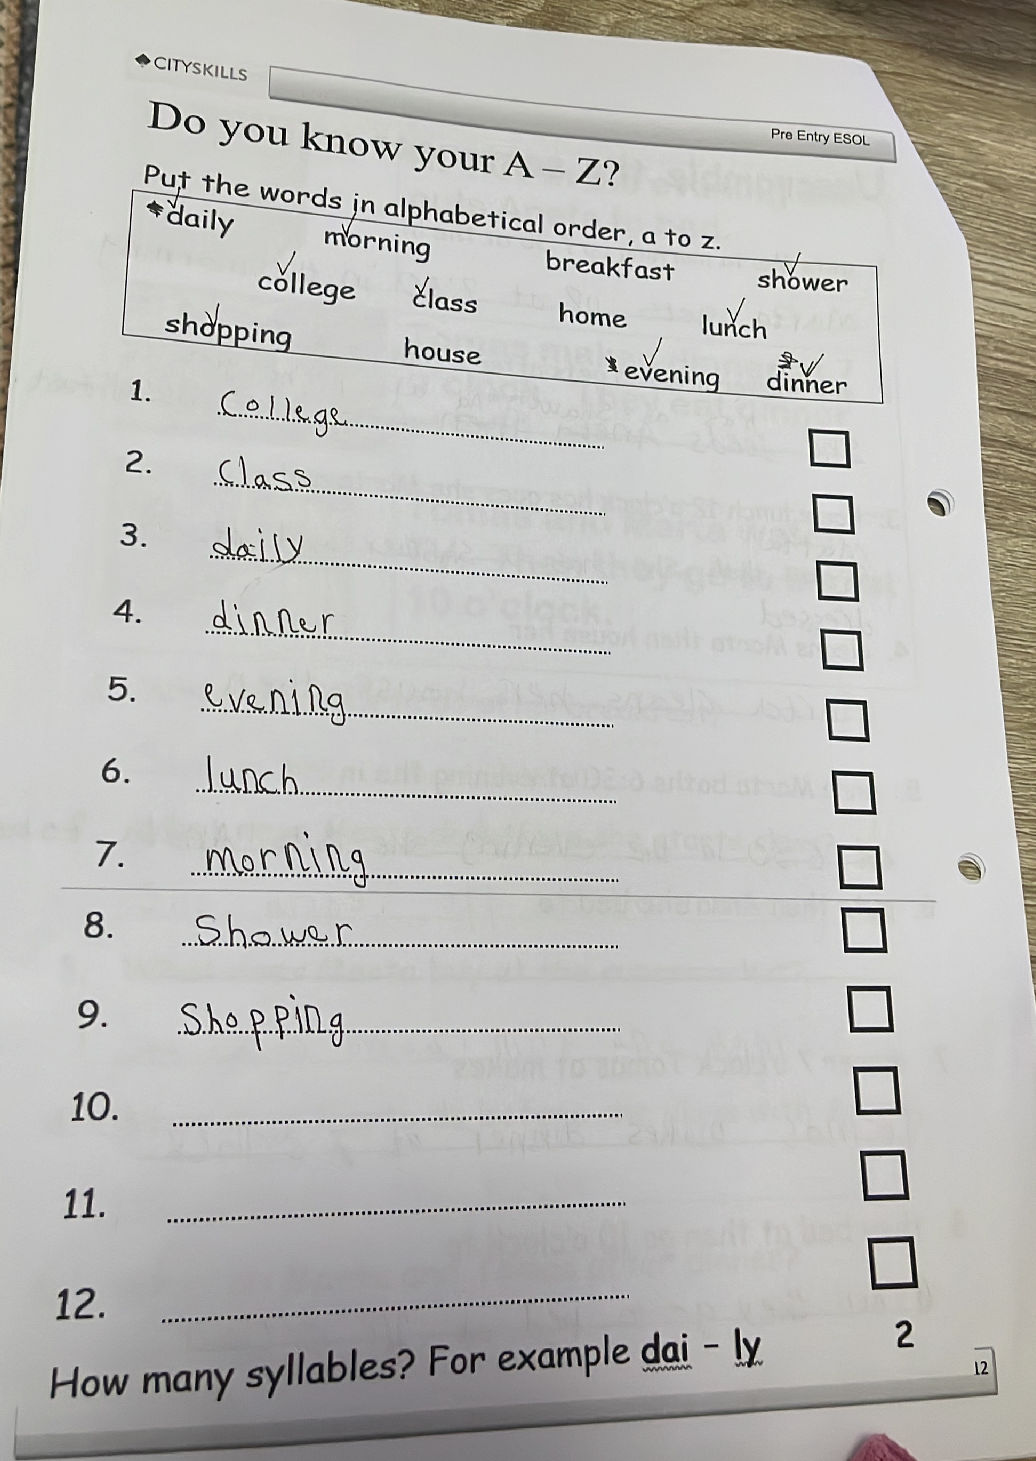 CITYSKILLS
Pre Entry ESOL
Do you know your A – Z?
Put the words in alphabetical order, a to z.
daily morning breakfast shower
college class home lunch
shopping house evening dinner
1. College
2. Class
3. daily
4. dinner
5. evening
6. lunch
7. morning
8. Shower
9. Shopping
10.
11.
12.
How many syllables? For example dai - ly 2
12